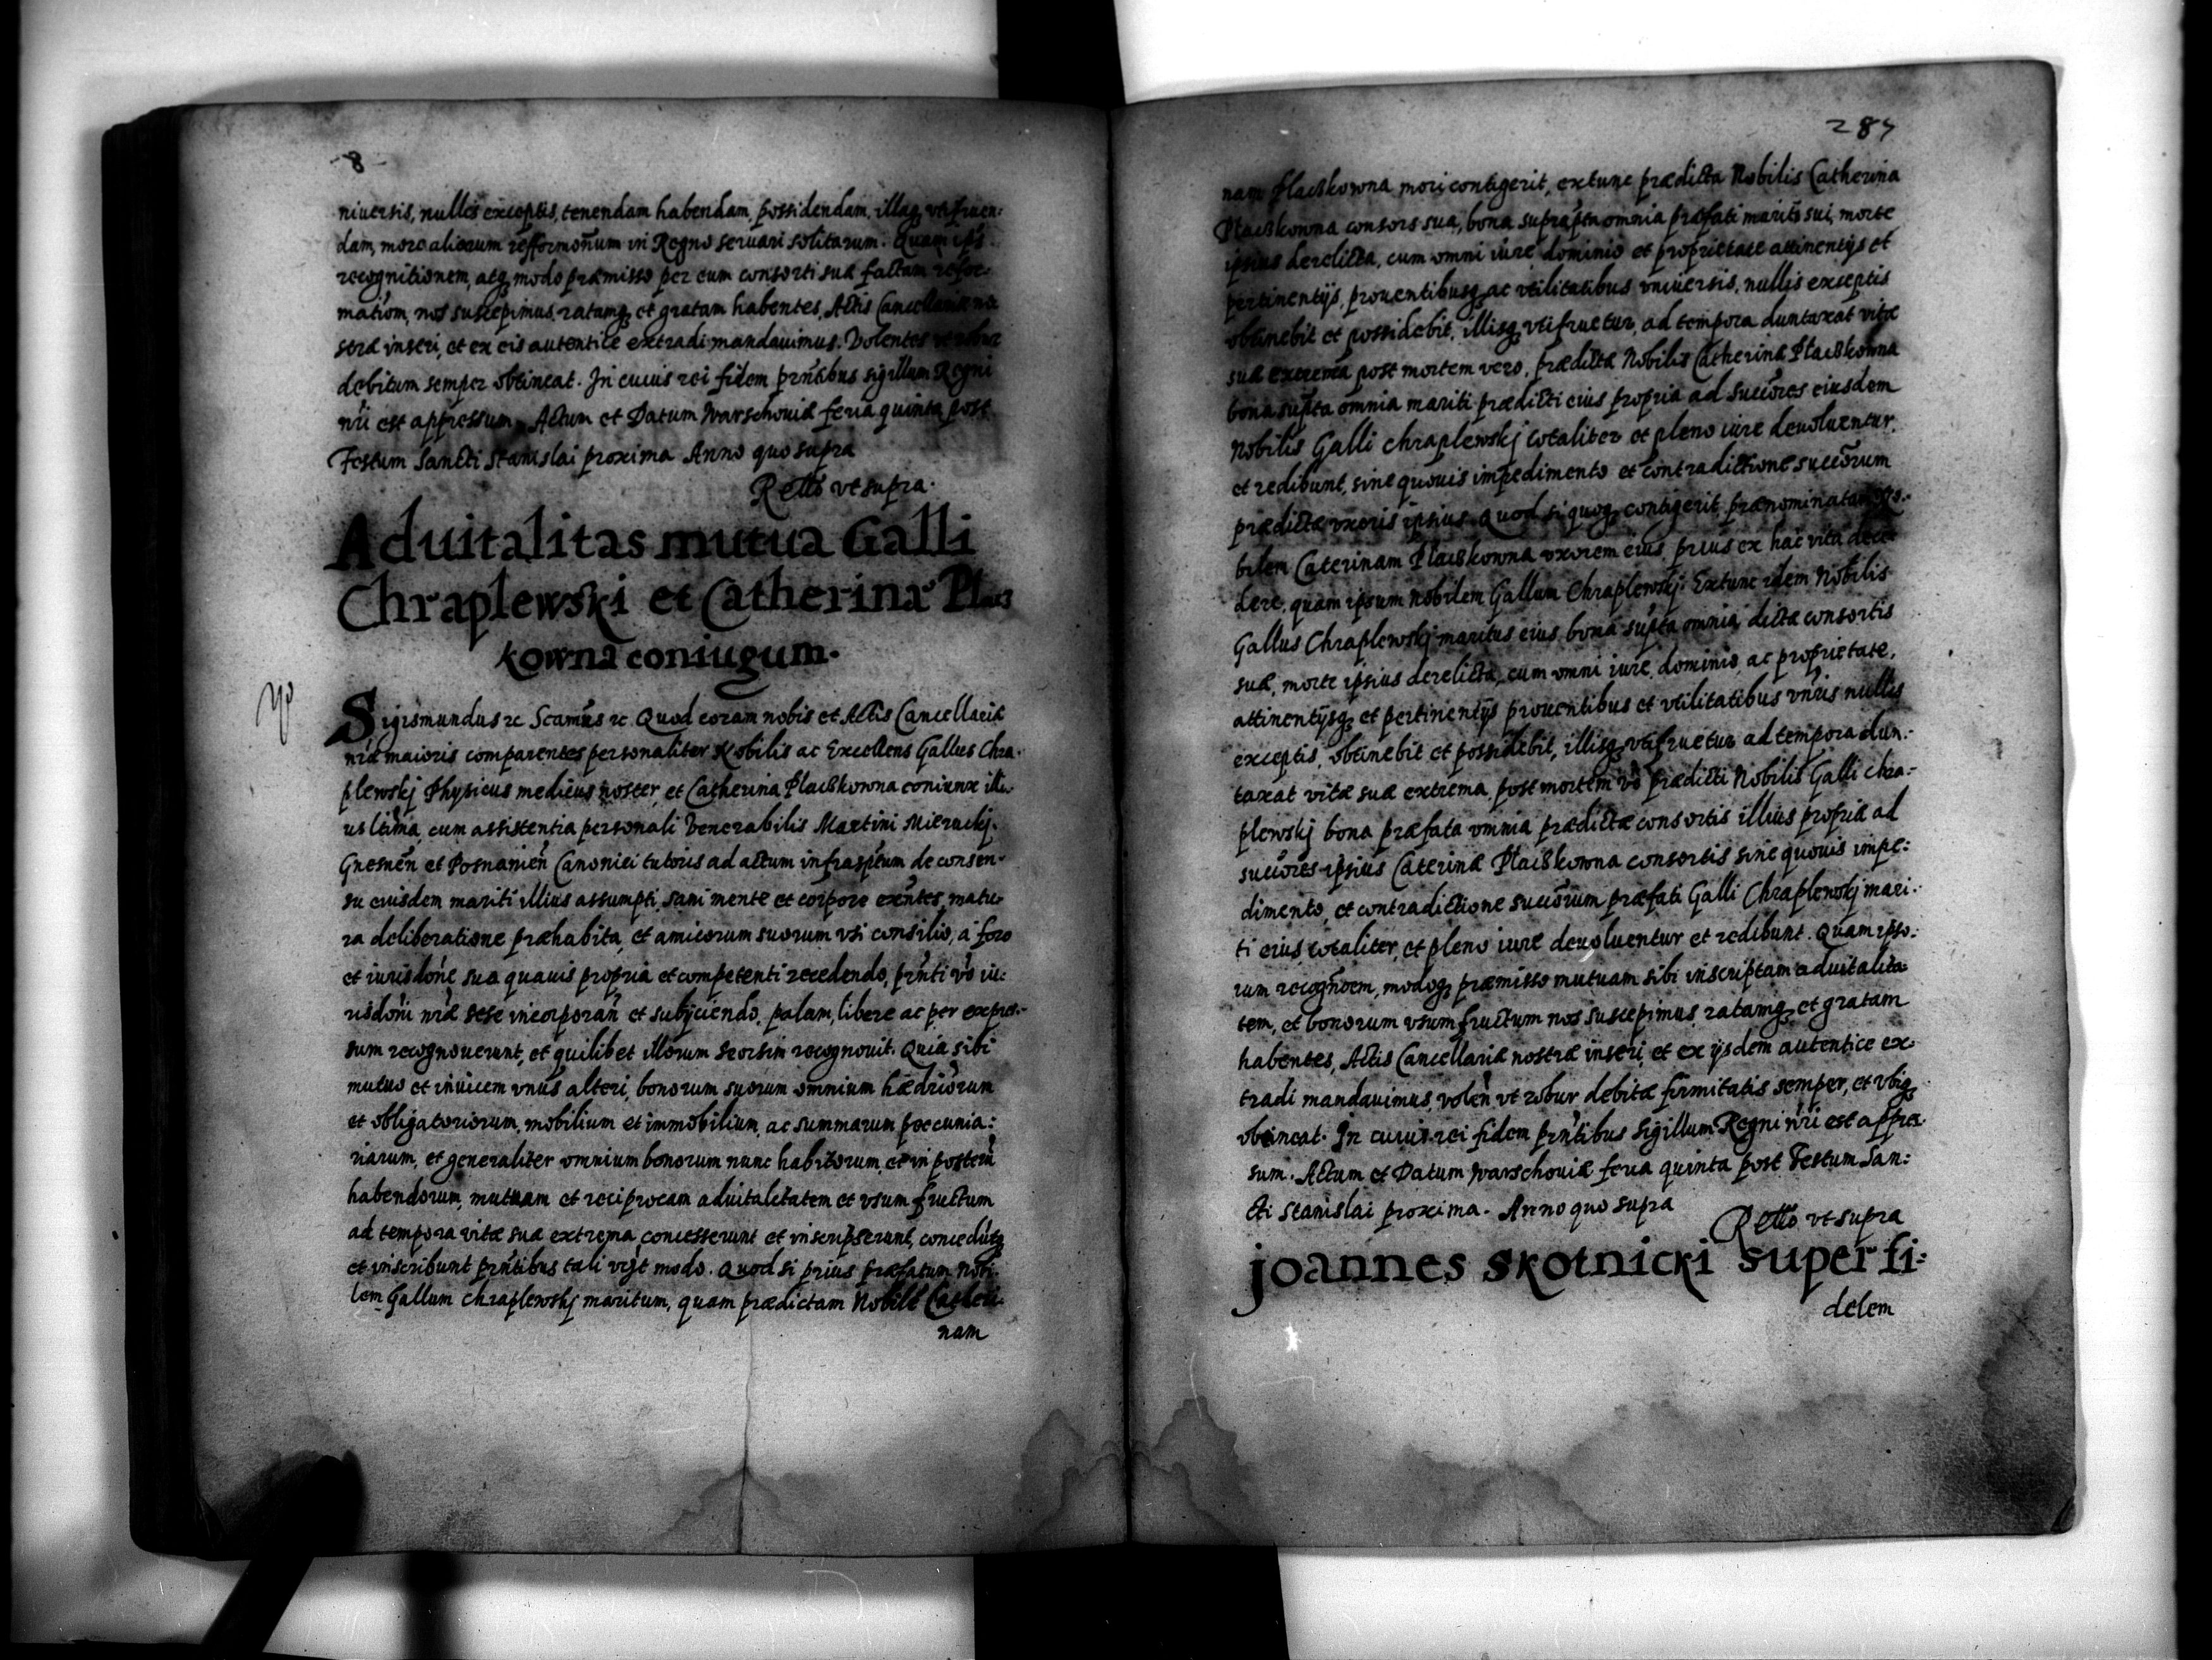 8
niuersis, nullis exceptis, tenendam habendam, possidendam, illaq vtifruen:
dam, more aliorum refformonum in Regno seruari solitarum. Quam ips
recognitionem, atq modo præmisso per eum consorti suæ factam refor:
mationm, nos suscepimus, ratamq et gratam habentes, Actis Cancellariæ no
stræ inseri, et ex eis autentice extradi mandauimus. Volentes vt robur
debitum semper obtineat. In cuius rei fidem pntibus sigillum Regni
nri est appressum. Actum et Datum Warschouiæ feria quinta post
Festum Sancti Stanislai proxima Anno quo supra
Rello vt supra.
Aduitalitas mutua Galli
Chraplewski et Catherinæ Plas3
kowna coniugum.
Sigismundus rc Scamus rc Quod coram nobis et Actis Cancellariæ
nræ maioris comparentes personaliter Nobilis ac Excellens Gallus Chra.
plewskj Physicus medicus noster, et Catherina Plasskowna coniunx illi
us ltima, cum assistentia personali Venerabilis Martini
Gnesnen et Posnanien Canonici tutoris ad actum infrasptum de consen-
su eiusdem mariti illius assumpti, sani mente et corpore exntes, matu-
ra deliberatione præhabita, et amicorum suorum vsi consilio, a foro
et iurisdone sua quauis propria et competenti recedendo, pnti vo iu:
risdoni nræ sese incorporan et subijciendo, palam, libere ac per expres-
sum recognouerunt, et quilibet illorum seorsim recognouit. Quia sibi
mutuo et inuicem vnus alteri, bonorum suorum omnium hædriorum
et obligatoriorum, mobilium et immobilium, ac summarum peccunia:
riarum, et generaliter omnium bonorum nunc habitorum, et in posteru
habendorum, mutuam et reciprocam aduitalitatem et vsum fructum
ad tempora vitæ suæ extrema concesserunt et inscripserunt, concedutq
et inscribunt pntibus tali vizt modo. Quod si prius præfatum Nobi.
lem Gallum Chraplewskj maritum, quam prædictam Nobile Catheri.
nam
284
nam Plasskowna mori contigerit, extunc prædicta Nobilis Catherina
Plasskowna consors sua, bona suprapta omnia præfati mariti sui, morte
ipsius derelicta, cum omni iure dominio et proprietate attinentijs et
pertinentijs, prouentibusq ac vtilitatibus vniuersis, nullis exceptis
obtinebit et possidebit, illisq vtifruetur, ad tempora duntaxat vitæ
suæ extrema post mortem vero, prædictæ Nobilis Catherinæ Plasskowna
bona supta omnia mariti prædicti eius propria ad succores eiusdem
Nobilis Galli Chraplewskj totaliter et pleno iure deuoluentur,
et redibunt, sine quouis impedimento et contradictione succorum
prædictæ vxoris ipsius. Quod si quoq contigerit, prænominatam No.
bilem Caterinam Plasskowna vxorem eius, prius ex hac vita dece
dere, quam ipsum Nobilem Gallum Chraplewskj. Extunc idem Nobilis
Gallus Chraplewskj maritus eius, bona supta omnia, dictæ consortis
suæ, morte ipsius derelicta, cum omni iure, dominio, ac proprietate,
attinentijsq et pertinentijs prouentibus et vtilitatibus vnris nullis
exceptis, obtinebit et possidebit, illisq vtifruetur ad tempora dun:
taxat vitæ suæ extrema, post mortem vo prædicti Nobilis Galli Chra:
plewskj bona præfata omnia prædictæ consortis illius propria ad
succores ipsius Caterinæ Plasskowna consortis sine quouis impe:
dimento, et contradictione succorum præfati Galli Chraplewskj mari:
ti eius, totaliter, et pleno iure deuoluentur et redibunt. Quam ipso:
rum recognoem, modoq præmisso mutuam sibi inscriptam aduitalita
tem, et bonorum vsumfructum nos suscepimus, ratamq et gratam
habentes, Actis Cancellariæ nostræ inseri, et ex ijsdem autentice ex.
tradi mandauimus, volen vt robur debitæ firmitatis semper, et vbiq
obtineat. In cuius rei fidem pntibus Sigillum Regni nri est appres
sum. Actum et Datum Warschouiæ feria quinta post Festum San:
cti Stanislai proxima. Anno quo supra
Rello vt supra
Joannes Skotnicki super fi:
delem